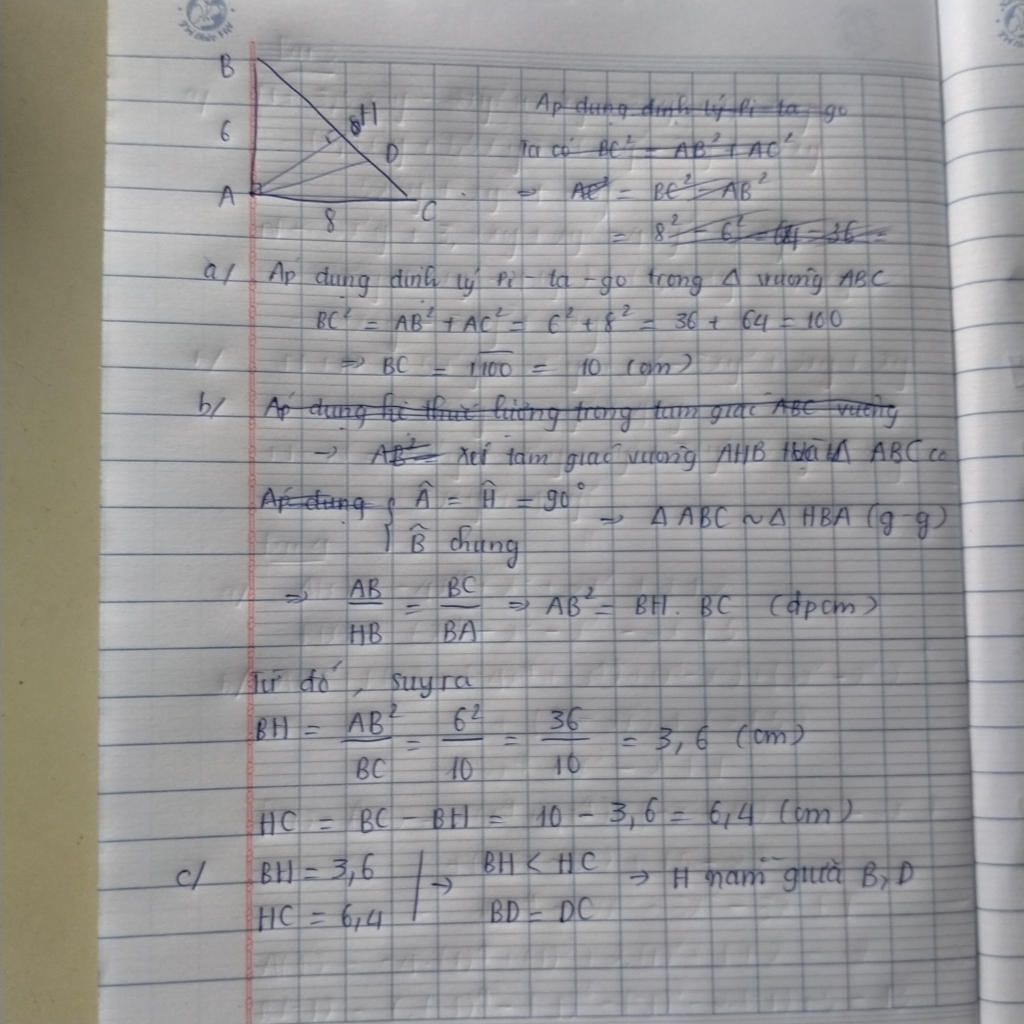 B
H
6
D
A
8
C
Áp dụng định lý Pi-ta-go
Ta có BC² = AB² + AC²
⇒ AC² = BC² - AB²
= 8² - 6² = 64 - 36 =
a/ Áp dụng định lý Pi-ta-go trong Δ vuông ABC
BC² = AB² + AC² = 6² + 8² = 36 + 64 = 100
⇒ BC = √100 = 10 (cm)
b/ Áp dụng hệ thức lượng trong tam giác ABC vuông
→ AB² = Xét tam giác vuông AHB và Δ ABC có
Áp dụng { Â = Ĥ = 90° ⇒ Δ ABC ~ Δ HBA (g-g)
B̂ chung
⇒ AB/HB = BC/BA ⇒ AB² = BH . BC (đpcm)
Từ đó, suy ra
BH = AB²/BC = 6²/10 = 36/10 = 3,6 (cm)
HC = BC - BH = 10 - 3,6 = 6,4 (cm)
c/ BH = 3,6 | → BH < HC → H nằm giữa B, D
HC = 6,4 | BD = DC